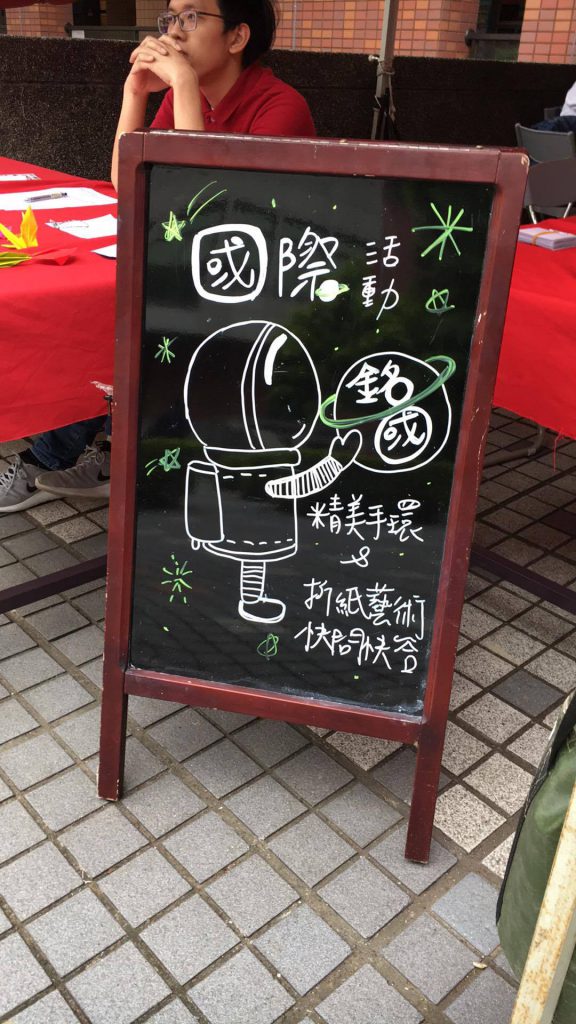 國際活動
銘國
精美手環
&
折紙藝術
快問快答